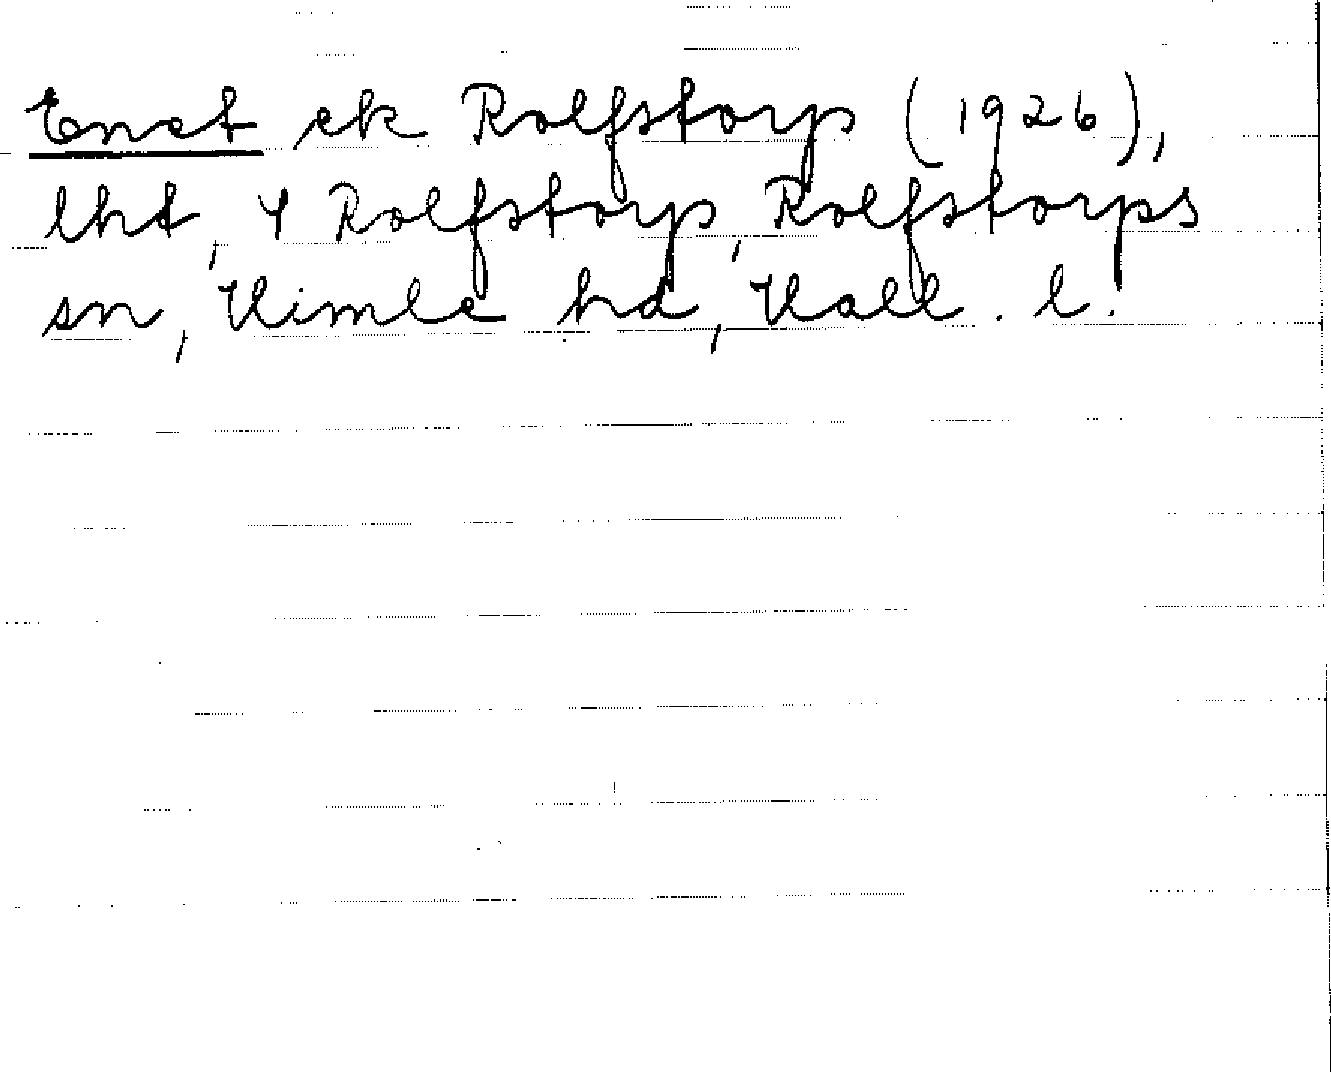 Enet ek Rolfstorp (1926),
lht, 4 Rolfstorp, Rolfstorps
sn, Himle hd, Hall. l.